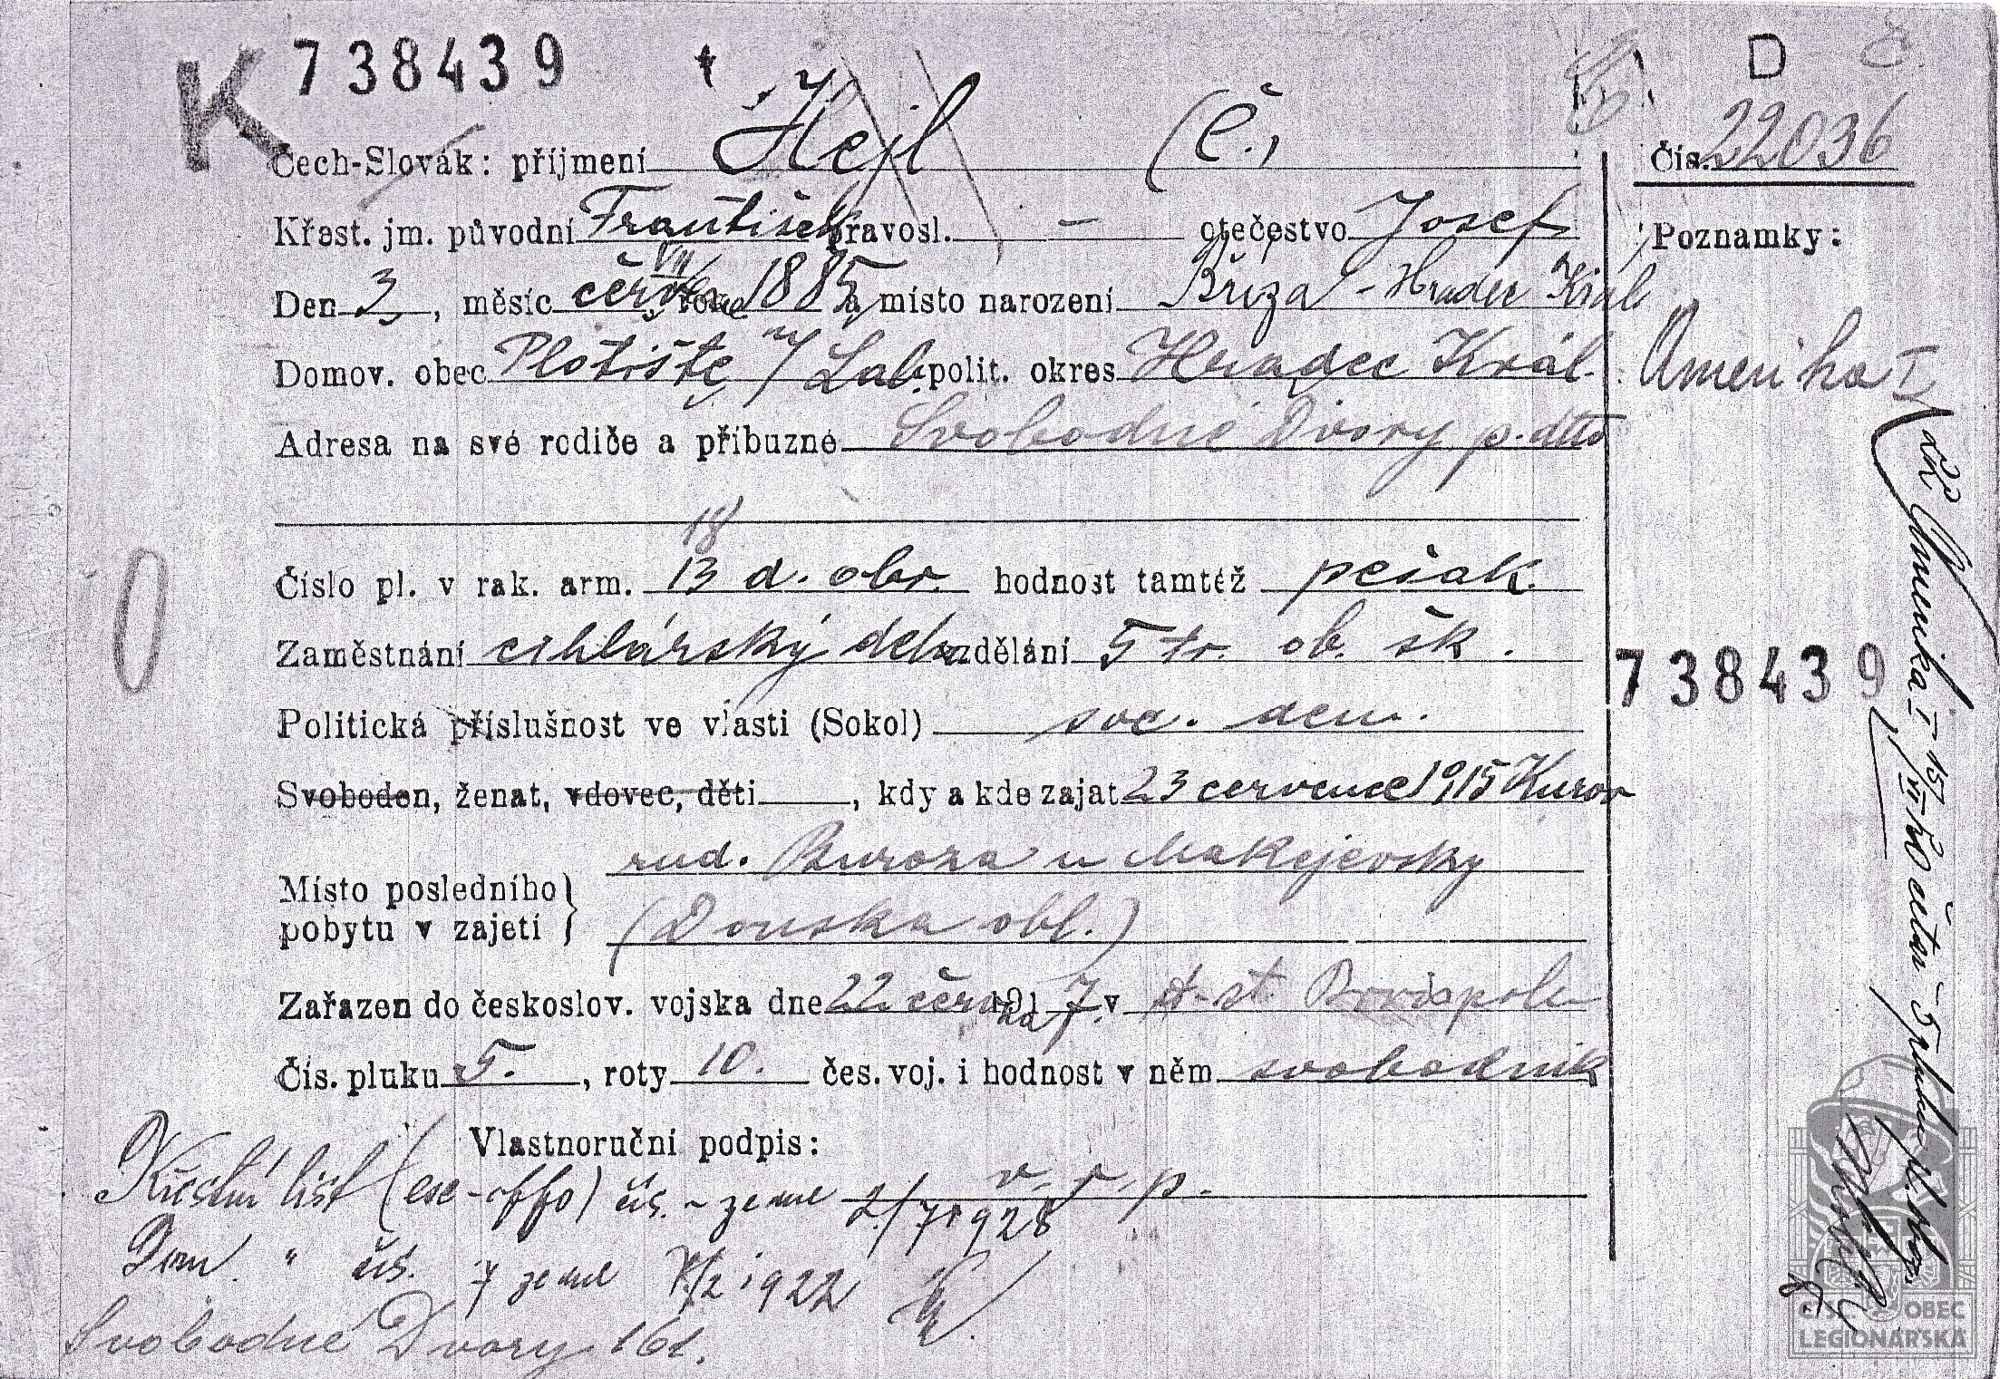 K 738439 D
Čech-Slovák: příjmení Hejl (Č.) Čís. 22036
Křest. jm. původní František pravosl. - otečestvo Josef Poznamky:
Den 3, měsíc VII roku 1885, a místo narození Bříza - Hradec Král
Domov. obec Plotiště n/Lab. polit. okres Hradec Král. Amerika I
Adresa na své rodiče a příbuzné Svobodné Dvory p. dtto
18
Číslo pl. v rak. arm. 13 d. obr. hodnost tamtéž pešak.
Zaměstnání cihlářský děl. vzdělání 5 tr. ob. šk.
738439
Politická příslušnost ve vlasti (Sokol) soc. dem.
Svoboden, ženat, vdovec, děti, kdy a kde zajat 23 července 1915 Kurov
rud. Buroza u Makejevsky
Místo posledního
pobytu v zajetí (Donska obl.)
Zařazen do českoslov. vojska dne 22. června 1917. v st. Borispole
Čís. pluku 5., roty 10. čes. voj. i hodnost v něm svobodník
Vlastnoruční podpis: v. r. p.
Křestní list čís. - ze dne 2./7 1928
Dom. " čís. 7 ze dne 1922
Svobodné Dvory 161.
Amerika I 15/VI 20
OBEC
LEGIONÁŘSKÁ